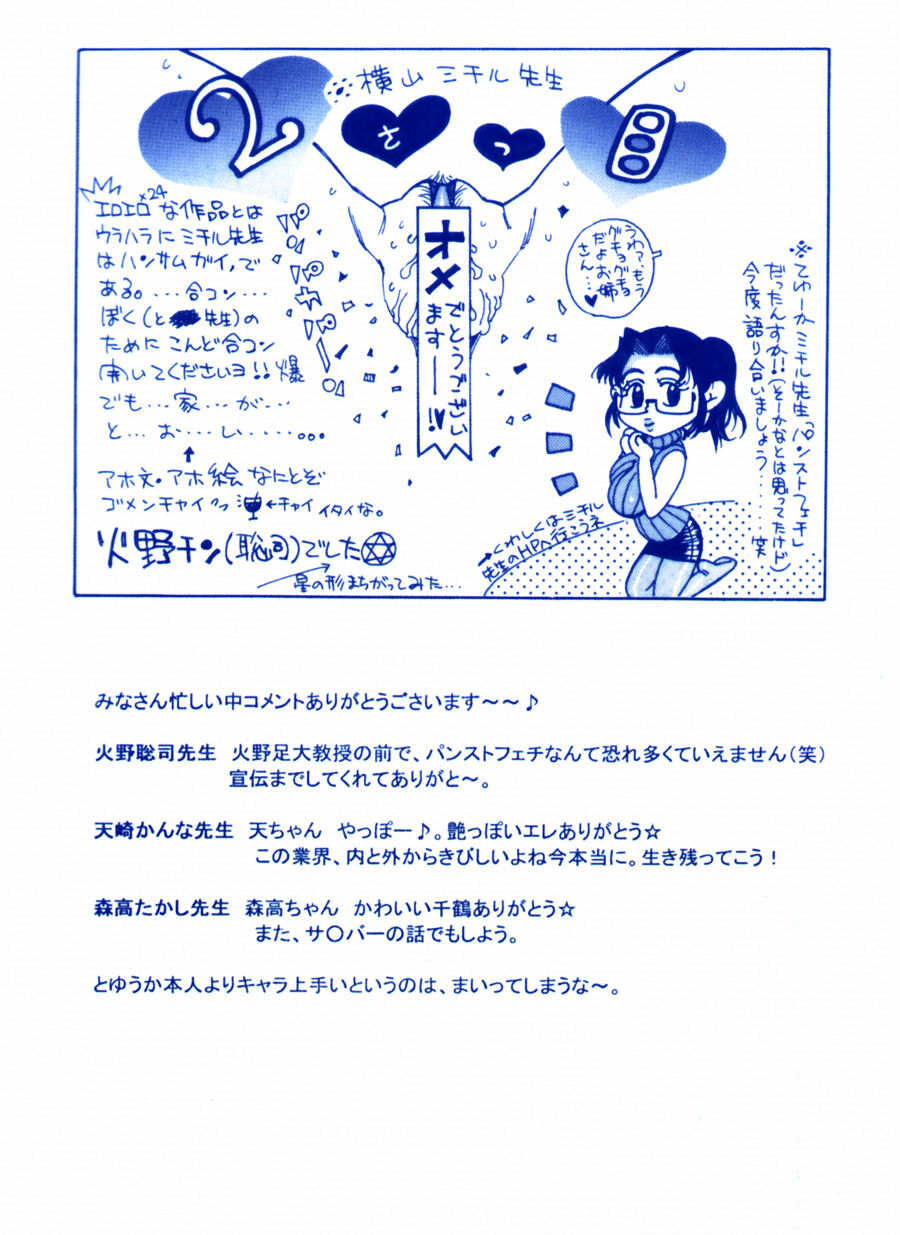 横山ミチル先生
2
さ
つ
目
エロエロx24な作品とは
ウラハラにミチル先生
はハンサムガイ,で
ある。...合コン...
ぼく(と 先生)の
ためにこんど合コン
開いてくださいヨ!!爆
でも...家...が...
と...お...し......。。。
↑
アホ文・アホ絵なにとぞ
ゴメンチャイ
←チャイ イタイな。
火野チン(聡司)でした
星の形まちがってみた...
オメ
でとうござい
ます――!!
うわァ、もう
グチョグチョ
だよお姉
さん...♥
※てゆーかミチル先生「パンストフェチ」
だったんすか!!(そーかなとは思ってたけど)
今度語り合いましょう....笑
→くわしくはミチル
先生のHPへ行こうネ
みなさん忙しい中コメントありがとうございます~~♪
火野聡司先生 火野足大教授の前で、パンストフェチなんて恐れ多くていえません(笑)
宣伝までしてくれてありがと~。
天崎かんな先生 天ちゃん やっぽー♪。艶っぽいエレありがとう☆
この業界、内と外からきびしいよね今本当に。生き残ってこう!
森高たかし先生 森高ちゃん かわいい千鶴ありがとう☆
また、サ○バーの話でもしよう。
とゆうか本人よりキャラ上手いというのは、まいってしまうな~。